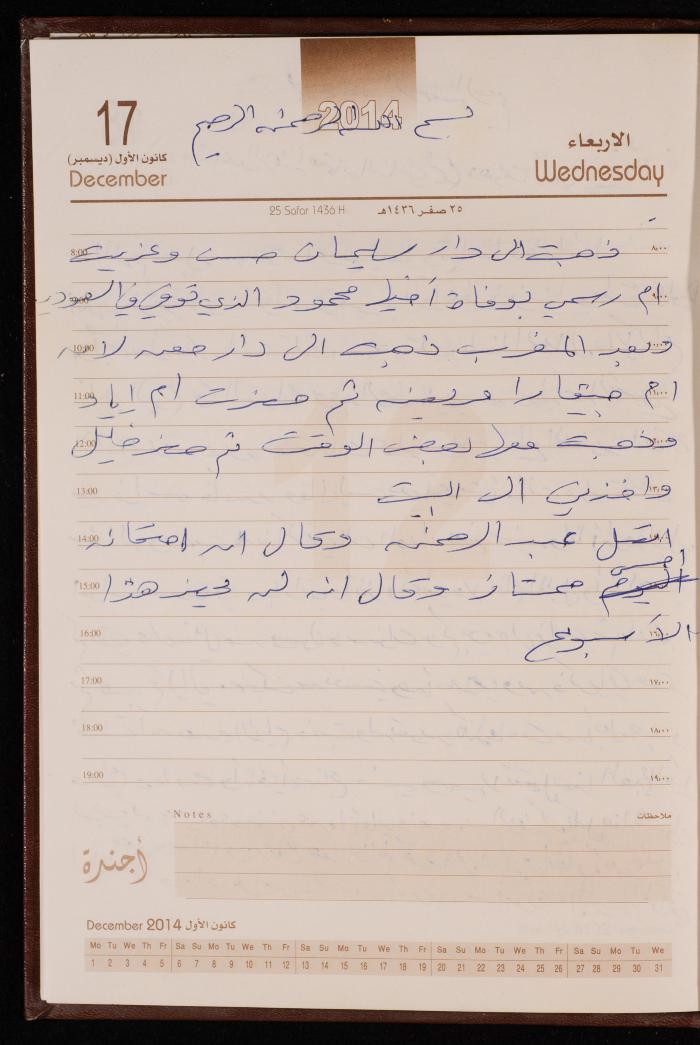 17
كانون الأول (ديسمبر)
December
2014
بسم الله الرحمن الرحيم
الاربعاء
Wednesday
25 Safar 1436 H
٢٥ صفر ١٤٣٦هـ
8:00 ذهبت الى دار سليمان حسن وعزيت ٨،٠٠
9:00 ام رسمي بوفاة اخيها محمود الذي توفي في السعودية ٩،٠٠
10:00 وبعد المغرب ذهبت الى دار لانه
11:00 ام مريضه ثم حضرت ام اياد ١١،٠٠
12:00 وذهبت معها بعض الوقت ثم حضر خليل
13:00 واخذني الى البيت ١٣،٠٠
14:00 اتصل عبد الرحمن وقال ان امتحانه
15:00 امس ممتاز وقال انه لن يحيز هذا
16:00 الأسبوع ١٦،٠٠
17:00 ١٧،٠٠
18:00 ١٨،٠٠
19:00 ١٩،٠٠
Notes ملاحظات
أجندة
December 2014 كانون الأول
Mo Tu We Th Fr Sa Su Mo Tu We Th Fr Sa Su Mo Tu We Th Fr Sa Su Mo Tu We Th Fr Sa Su Mo Tu We
1 2 3 4 5 6 7 8 9 10 11 12 13 14 15 16 17 18 19 20 21 22 23 24 25 26 27 28 29 30 31